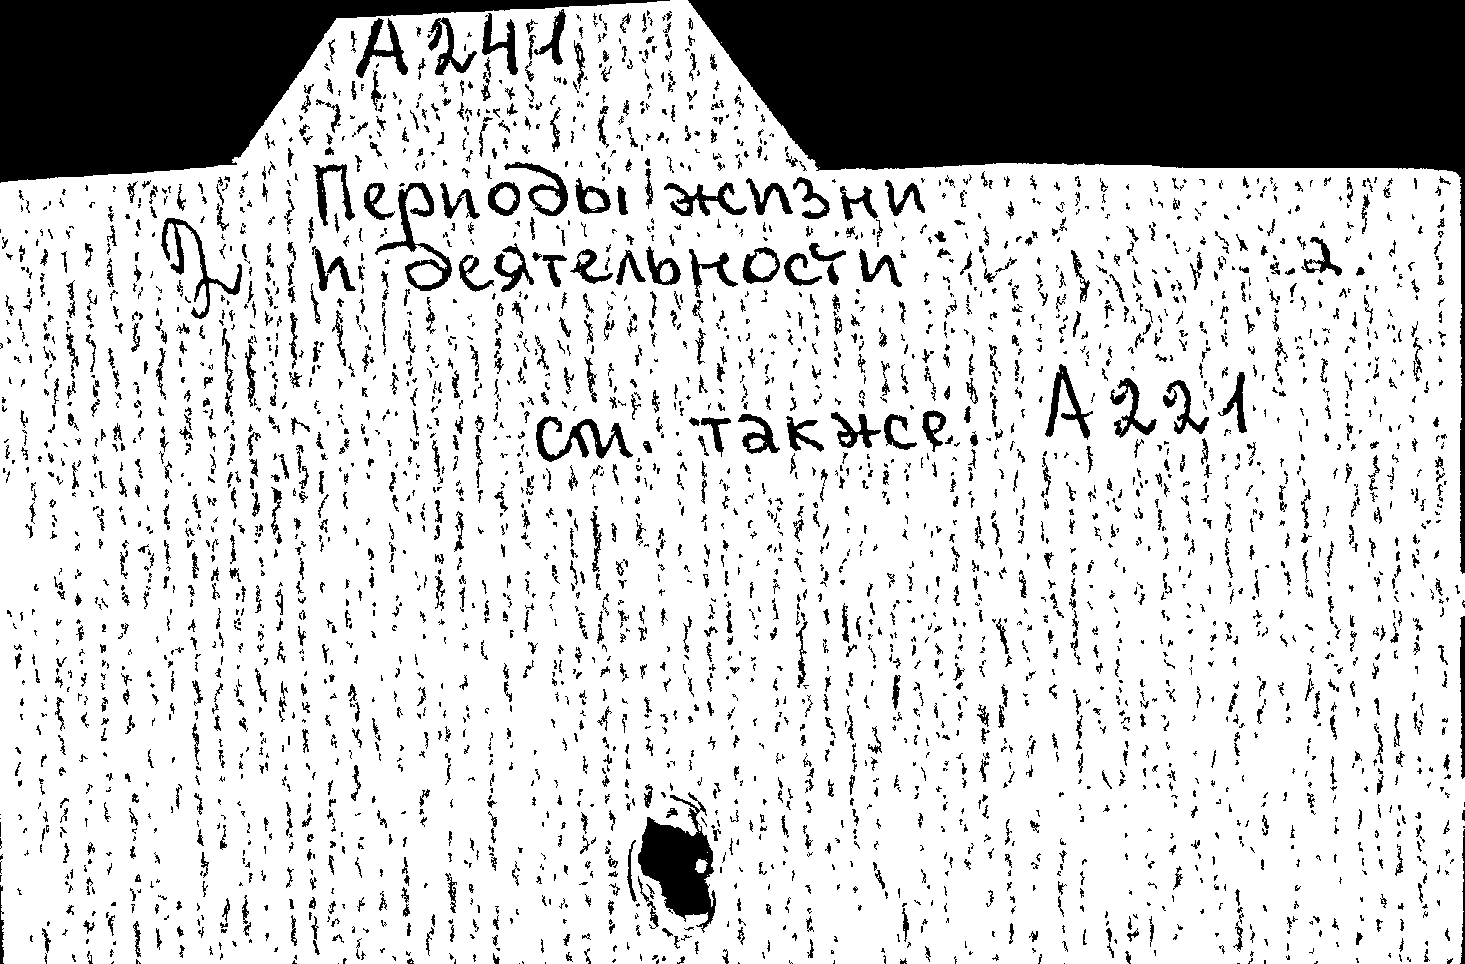 А241
Периоды жизни
2 и деятельности 2.
см. также А221